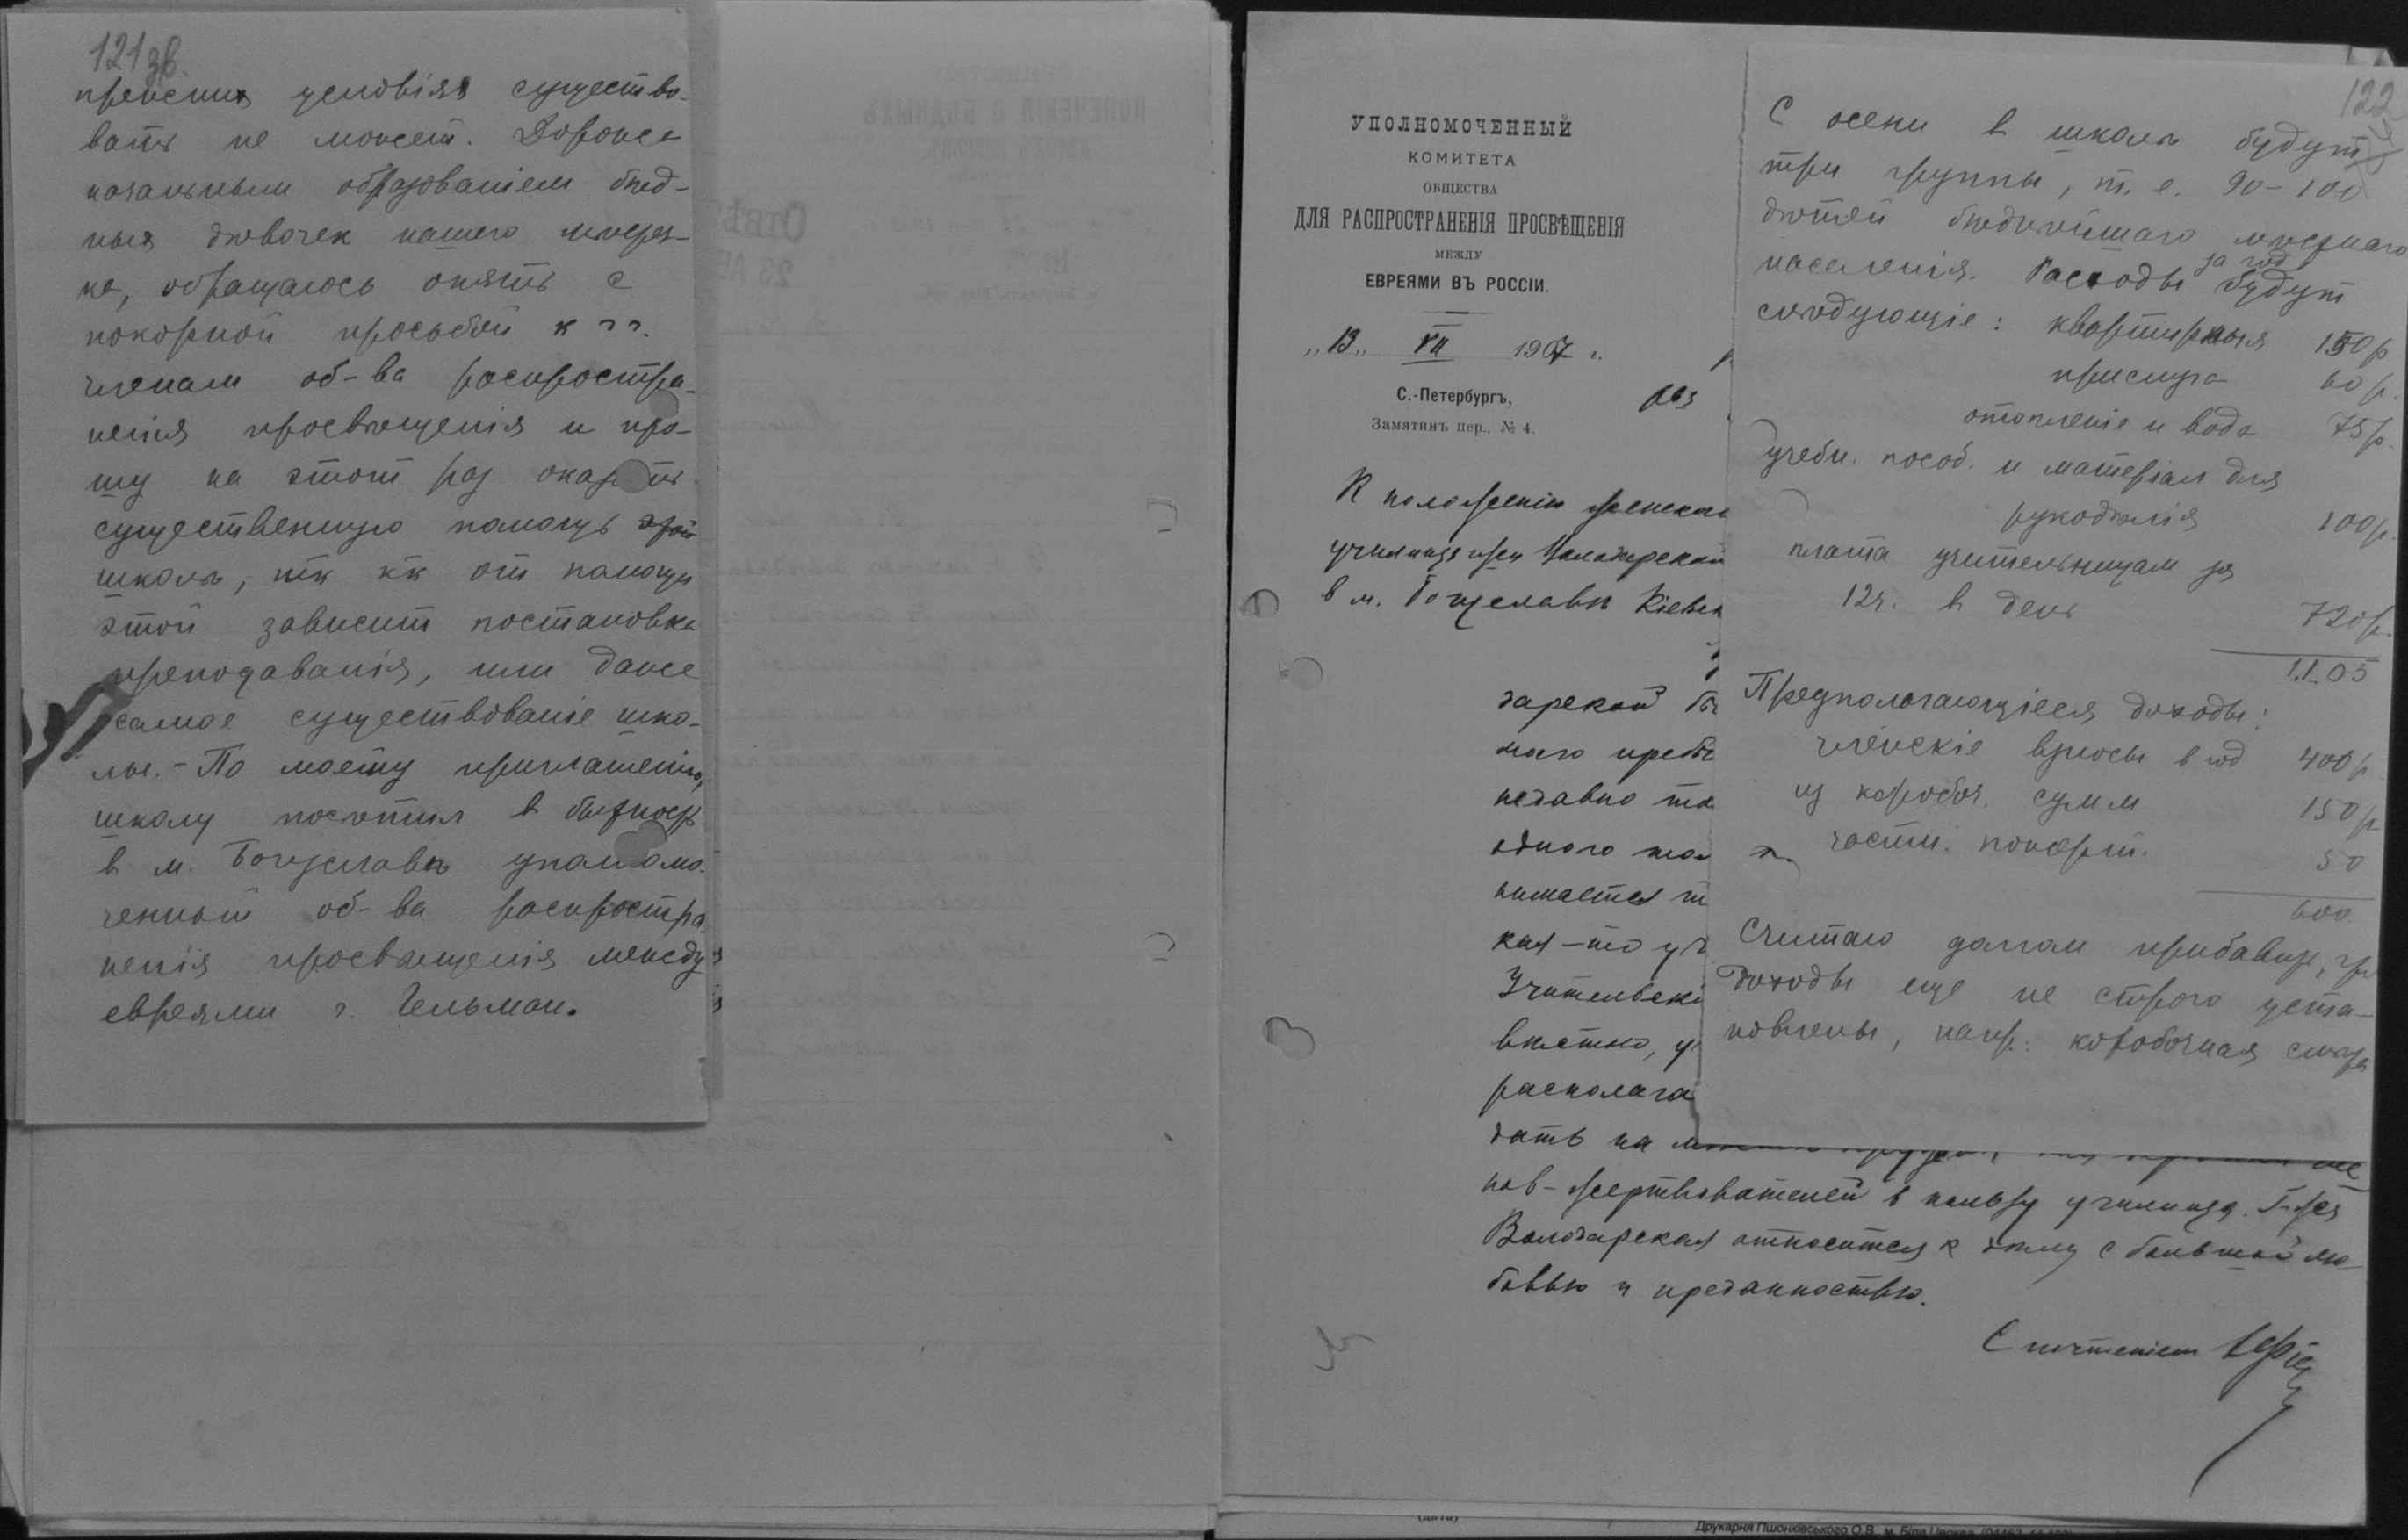 121 зв.
прежних условіях существо-
вать не может. Дорожа
начальным образованіем бѣд-
ных дѣвочек нашего мѣстеч-
ка, обращаюсь опять с
покорной просьбой к г.г.
членам об-ва распростра-
ненія просвѣщенія и про-
шу на этот раз оказать
существенную помощь этой
школѣ, тк кк от помощи
этой зависит постановка
преподаванія, или даже
самое существованіе шко-
лы. - По моему приглашенію,
школу посѣтил в бытность
в м. Богуславѣ уполномо-
ченный об-ва распростра-
ненія просвѣщенія между
евреями г. Гельман.
УПОЛНОМОЧЕННЫЙ
КОМИТЕТА
ОБЩЕСТВА
ДЛЯ РАСПРОСТРАНЕНІЯ ПРОСВѢЩЕНІЯ
МЕЖДУ
ЕВРЕЯМИ ВЪ РОССІИ.
„13„ VII 1907 г.
С.-Петербургъ,
Замятинъ пер., № 4.
К положенію женскаго
училища г-жи Володарской
в м. Богуславѣ Кіевск
дарской
маго
недавно
одного
нимается
кая-то
Учительскі
вмѣстно,
располага
дать на
нов-жертвователей в пользу училища. Г-жа
Володарская относится к дѣлу с большой лю-
бовью и преданностью.
С почтеніем
122
С осени в школѣ будут
три группы, т. е. 90-100
дѣтей бѣднѣйшаго мѣстнаго
населенія. Расходы за год будут
слѣдующіе: квартирныя 150 р
прислуга 60 р.
отопленіе и вода 75 р.
учебн. пособ. и матеріал для
рукодѣлія 100 р.
плата учительницам за
12 ч. в день 720 р.
1105
Предполагающіеся доходы:
членскіе взносы в год 400 р
из коробоч. сумм 150 р
частн. пожерт. 50
600
Считаю долгом прибавить, что
доходы еще не строго уста-
новлены, напр.: коробочная
(дата)
Друкарня Пшонківського О.В. м. Біла Церква